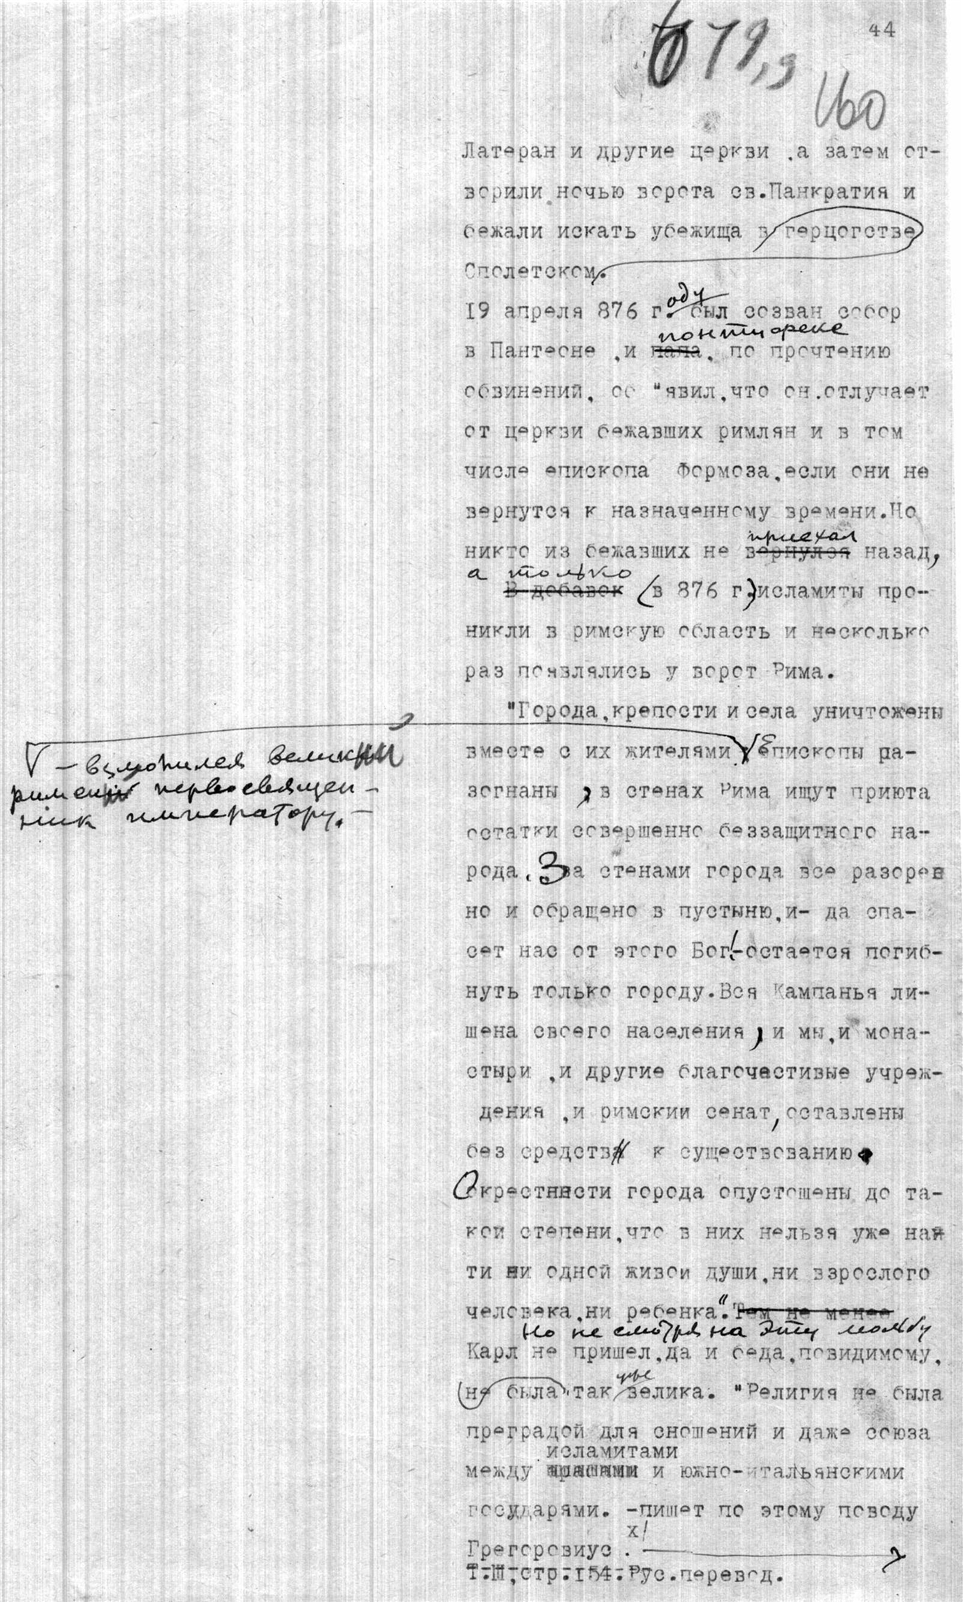 44
679,9
160
Латеран и другие церкви ,а затем от-
ворили ночью ворота св.Панкратия и
бежали искать убежища в герцогстве
Сполетском.
оду
19 апреля 876 г. был созван собор
понтифекс
в Пантеоне ,и папа, по прочтению
обвинений, об "явил,что он отлучает
от церкви бежавших римлян и в том
числе епископа Формоза,если они не
вернутся к назначенному времени.Но
приехал
никто из бежавших не вернулся назад,
а только
В добавок (в 876 г.)исламиты про-
никли в римскую область и несколько
раз появлялись у ворот Рима.
"Города,крепости и села уничтожены
вместе с их жителями, епископы ра-
зогнаны , в стенах Рима ищут приюта
остатки совершенно беззащитного на-
рода. За стенами города все разорен
но и обращено в пустыню,и- да спа-
сет нас от этого Бог!-остается погиб-
нуть только городу.Вся Кампанья ли-
шена своего населения, и мы,и мона-
стыри ,и другие благочестивые учреж-
дения ,и римский сенат,оставлены
без средств к существованию.
Окрестности города опустошены до та-
кой степени,что в них нельзя уже най
ти ни одной живой души,ни взрослого
человека,ни ребенка". Тем не менее
Но не смотря на эту мольбу
Карл не пришел,да и беда,повидимому,
уже
не была так велика. "Религия не была
преградой для сношений и даже союза
исламитами
между и южно-итальянскими
государями. -пишет по этому поводу
х/
Грегоровиус .
Т.Ш,стр.154.Рус.перевод.
V – взмолился великий
римский первосвящен-
ник императору. –